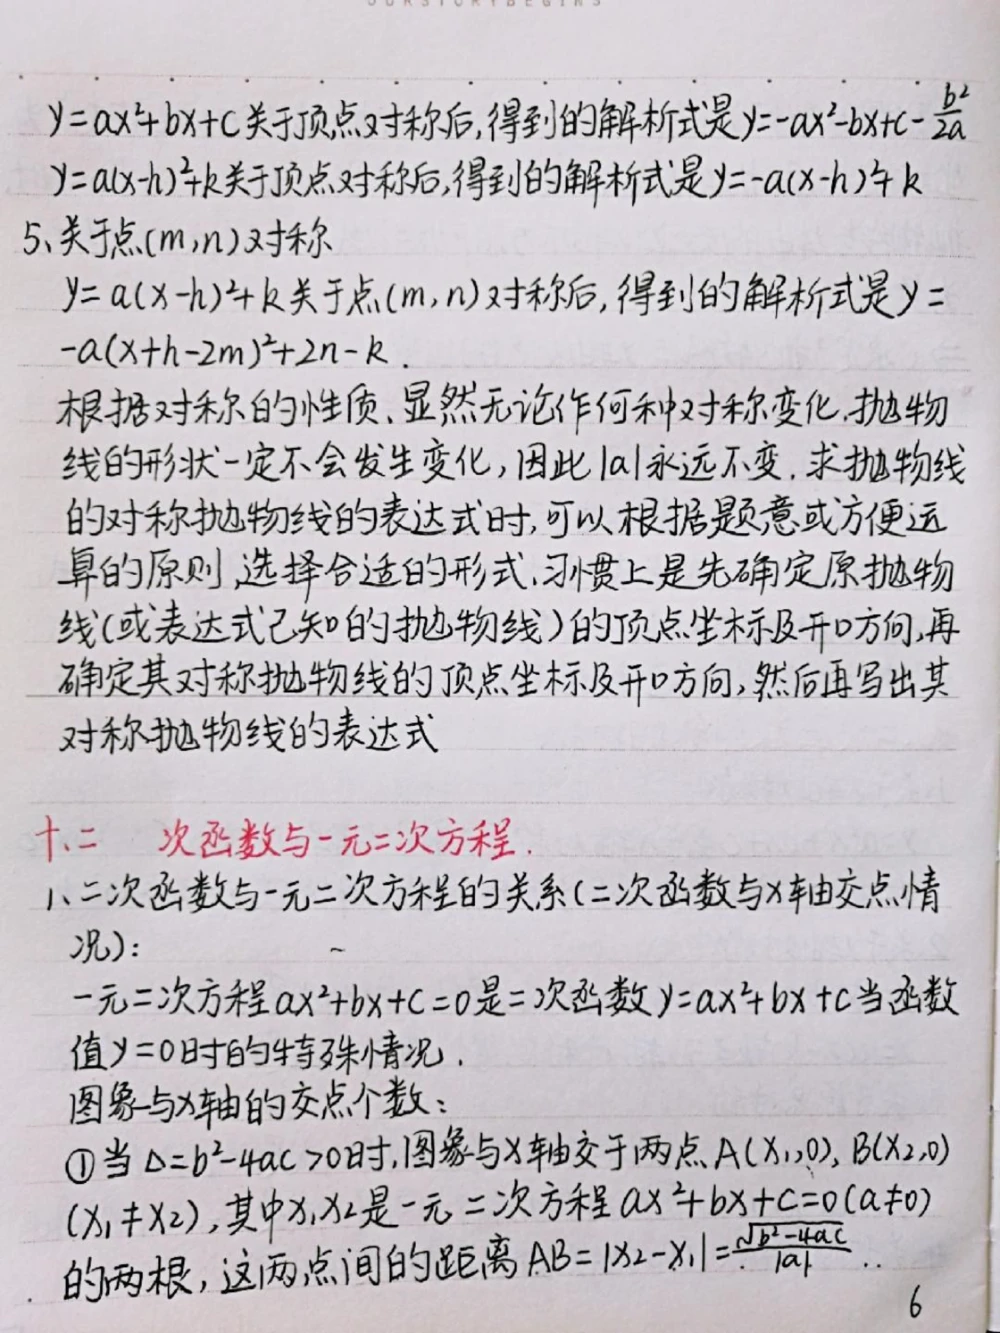 OURSTORYBEGINS
y=ax²+bx+c关于顶点对称后,得到的解析式是y=-ax²-bx+c-b²/2a
y=a(x-h)²+k关于顶点对称后,得到的解析式是y=-a(x-h)²+k
5、关于点(m,n)对称
y=a(x-h)²+k关于点(m,n)对称后,得到的解析式是y=
-a(x+h-2m)²+2n-k.
根据对称的性质、显然无论作何种对称变化,抛物
线的形状一定不会发生变化,因此|a|永远不变.求抛物线
的对称抛物线的表达式时,可以根据题意或方便运
算的原则,选择合适的形式,习惯上是先确定原抛物
线(或表达式已知的抛物线)的顶点坐标及开口方向,再
确定其对称抛物线的顶点坐标及开口方向,然后再写出其
对称抛物线的表达式
十、二 次函数与一元二次方程.
1、二次函数与一元二次方程的关系(二次函数与x轴交点情
况):
一元二次方程ax²+bx+c=0是二次函数y=ax²+bx+c当函数
值y=0时的特殊情况.
图象与x轴的交点个数:
①当Δ=b²-4ac>0时,图象与x轴交于两点A(x₁,0),B(x₂,0)
(x₁≠x₂),其中x₁,x₂是一元二次方程ax²+bx+c=0(a≠0)
的两根,这两点间的距离AB=|x₂-x₁|=√b²-4ac/|a|..
6